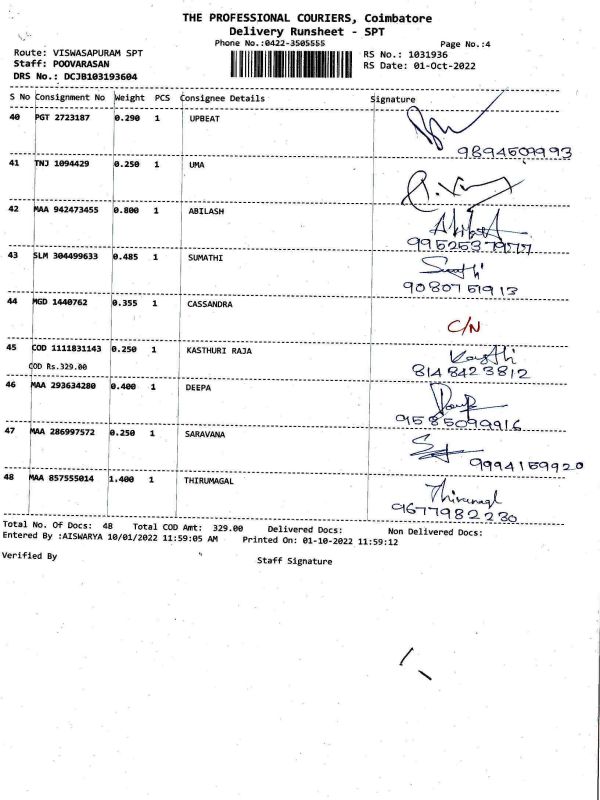 THE PROFESSIONAL COURIERS, Coimbatore
Delivery Runsheet - SPT
Phone No.:0422-3505555
Page No.:4
Route: VISWASAPURAM SPT
RS No.: 1031936
Staff: POOVARASAN
RS Date: 01-Oct-2022
DRS No.: DCJB103193604
S No Consignment No Weight PCS Consignee Details Signature
40 PGT 2723187 0.290 1 UPBEAT
9894509993
41 TNJ 1094429 0.250 1 UMA
42 MAA 942473455 0.800 1 ABILASH
9952537977
43 SLM 304499633 0.485 1 SUMATHI
Sumathi
9080751913
44 MGD 1440762 0.355 1 CASSANDRA
C/N
45 COD 1111831143 0.250 1 KASTHURI RAJA
COD Rs.329.00
8148423812
46 MAA 293634280 0.400 1 DEEPA
9585099916
47 MAA 286997572 0.250 1 SARAVANA
9994159920
48 MAA 857555014 1.400 1 THIRUMAGAL
Thirumagl
9677982230
Total No. Of Docs: 48 Total COD Amt: 329.00 Delivered Docs: Non Delivered Docs:
Entered By :AISWARYA 10/01/2022 11:59:05 AM Printed On: 01-10-2022 11:59:12
Verified By
Staff Signature